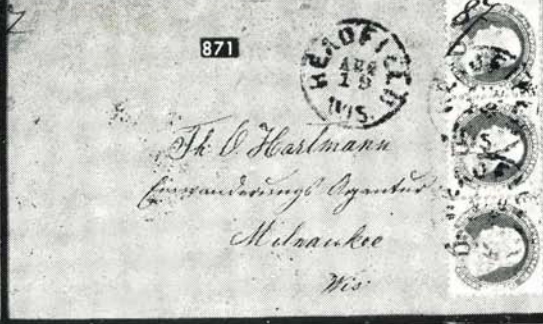 871
READFIELD
AUG
19
WIS.
Th. O. Hartmann
Einwanderungs Agentur
Milwaukee
Wis.